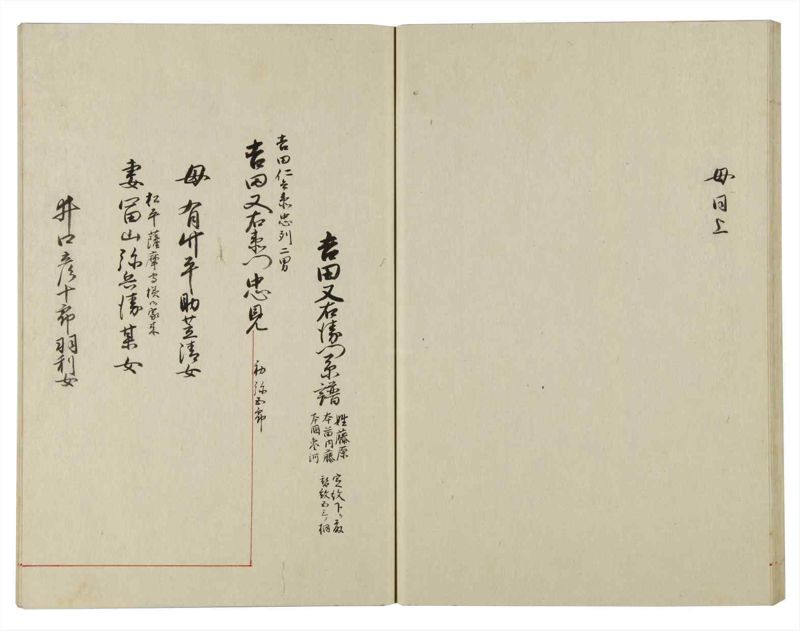 母同上
吉田又右衛門系譜
姓藤原
本苗内藤
本国
定紋下り藤
替紋五三ノ桐
吉田仁右衛門忠列二男
吉田又右衛門忠見
初弥五郎
母有竹平助
清女
松平薩摩守様御家来
妻富山弥兵衛某女
井口彦十郎
利女